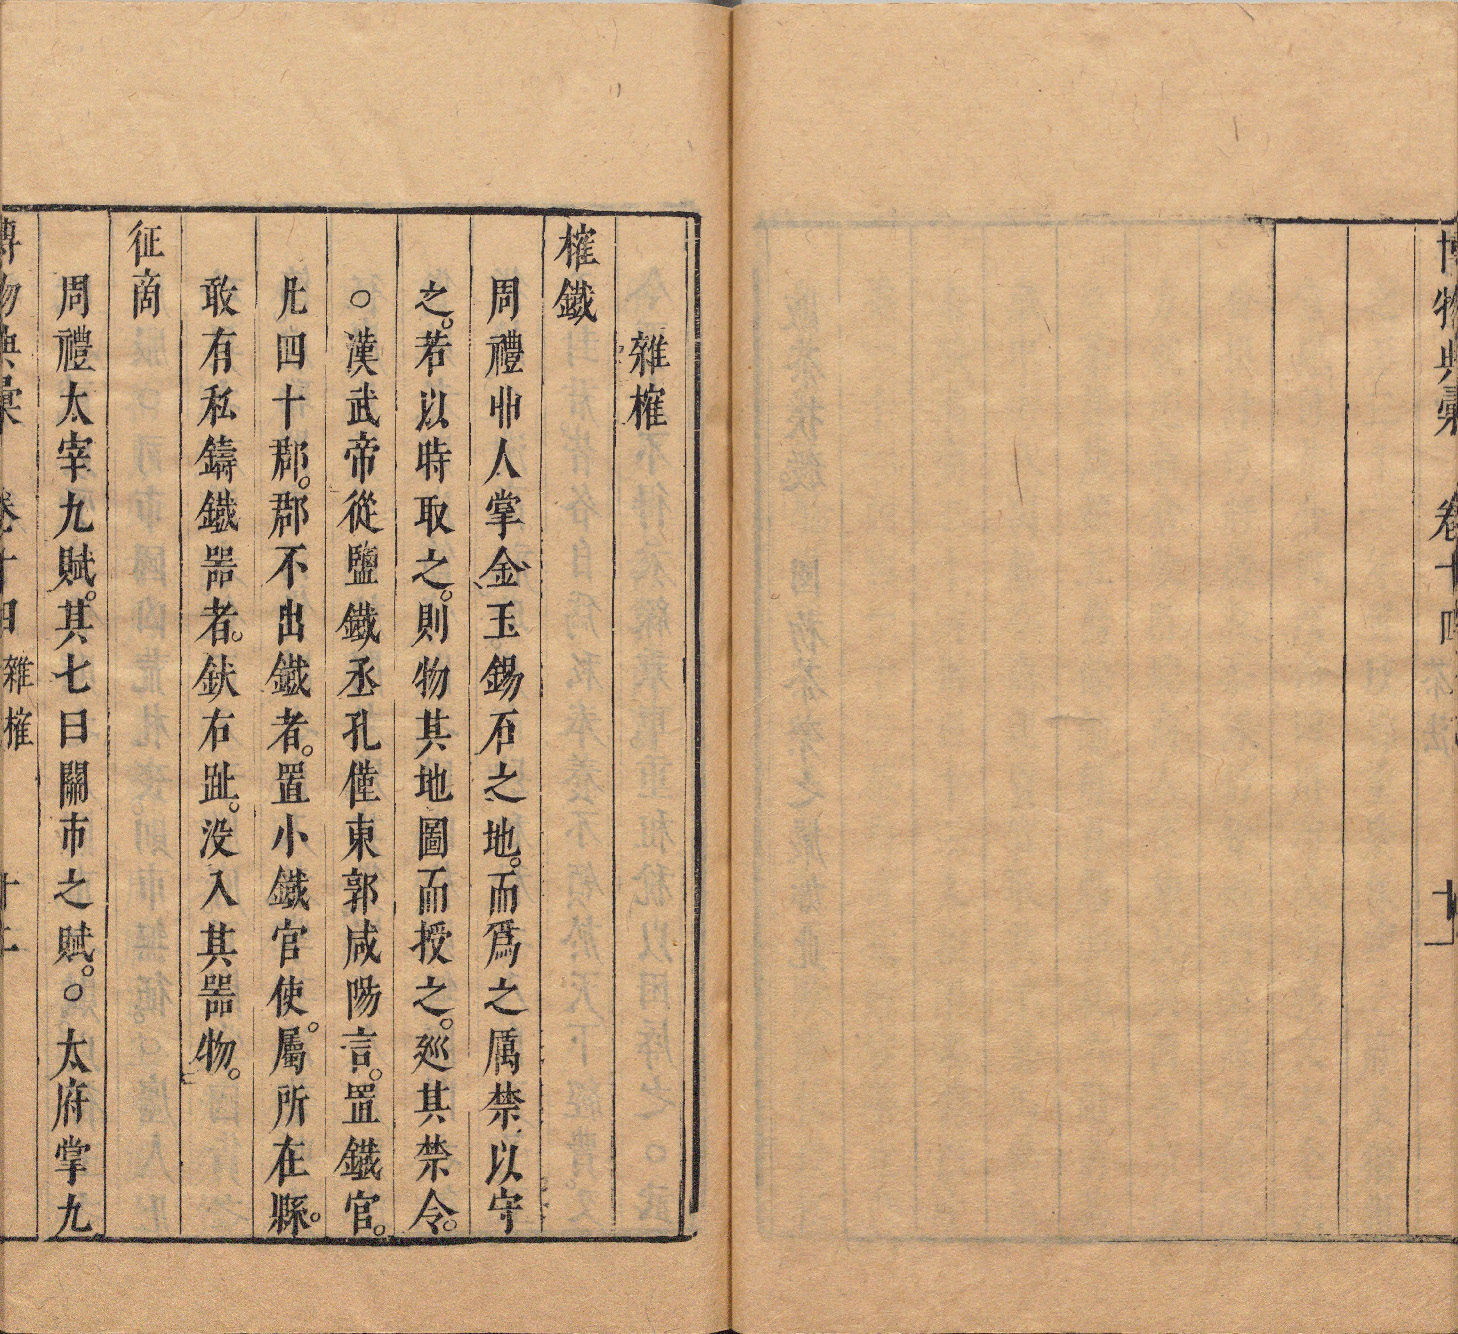 博物典彙
卷十四
十一
雜榷
榷鐵
周禮丱人掌金玉錫石之地。而爲之厲禁以守
之。若以時取之。則物其地圖而授之。廵其禁令。
○漢武帝從鹽鐵丞孔僅東郭咸陽言。置鐵官。
凡四十郡。郡不出鐵者。置小鐵官使。屬所在縣。
敢有私鑄鐵噐者。釱右趾。没入其噐物。
征商
周禮太宰九賦。其七曰關市之賦。○太府掌九
博物典彙
卷十四
雜榷
十二